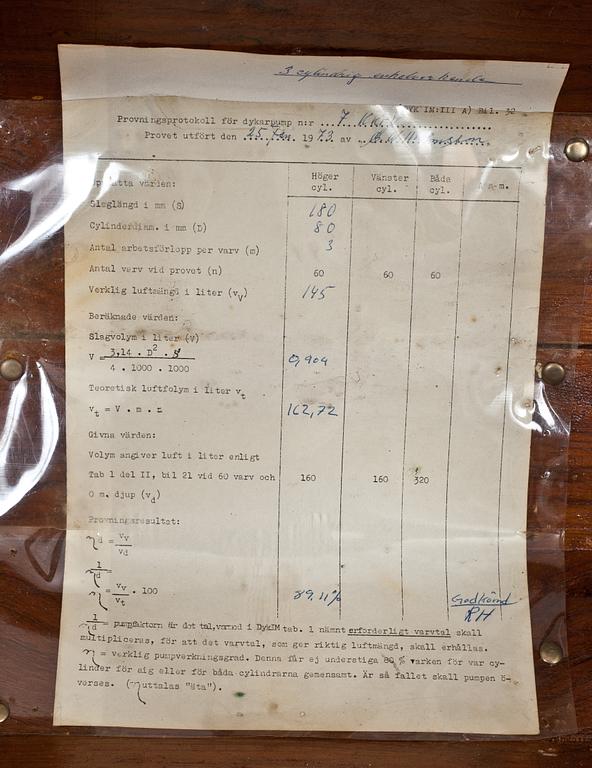 3 cylindrig enkelverkande
IM:III A) Bil. 32
Provningsprotokoll för dykarpump n:r ... 7
Provet utfört den 25. 1973. av
Höger cyl. Vänster cyl. Båda cyl. A n m.
värden:
Slaglängd i mm (S) 180
Cylinderdiam. i mm (D) 80
Antal arbetsförlopp per varv (m) 3
Antal varv vid provet (n) 60 60 60
Verklig luftmängd i liter (vV) 145
Beräknade värden:
Slagvolym i liter (V)
V = 3,14 . D2 . S / 4 . 1000 . 1000 0,904
Teoretisk luftfolym i liter vt
vt = V . m . n 162,72
Givna värden:
Volym angiver luft i liter enligt
Tab 1 del II, bil 21 vid 60 varv och 160 160 320
0 m. djup (vd)
Provningsresultet:
ηd = vv / vd
1 / ηd
η = vv / vt . 100 89,11% Godkänd
RH
1 / ηd = pumpfaktorn är det tal, varmed i DykIM tab. 1 nämnt erforderligt varvtal skall
multipliceras, för att det varvtal, som ger riktig luftmängd, skall erhållas.
η = verklig pumpverkningsgrad. Denna får ej understiga 80 % varken för var cy-
linder för sig eller för båda cylindrarna gemensamt. Är så fallet skall pumpen ö-
verses. (η uttalas "äta").